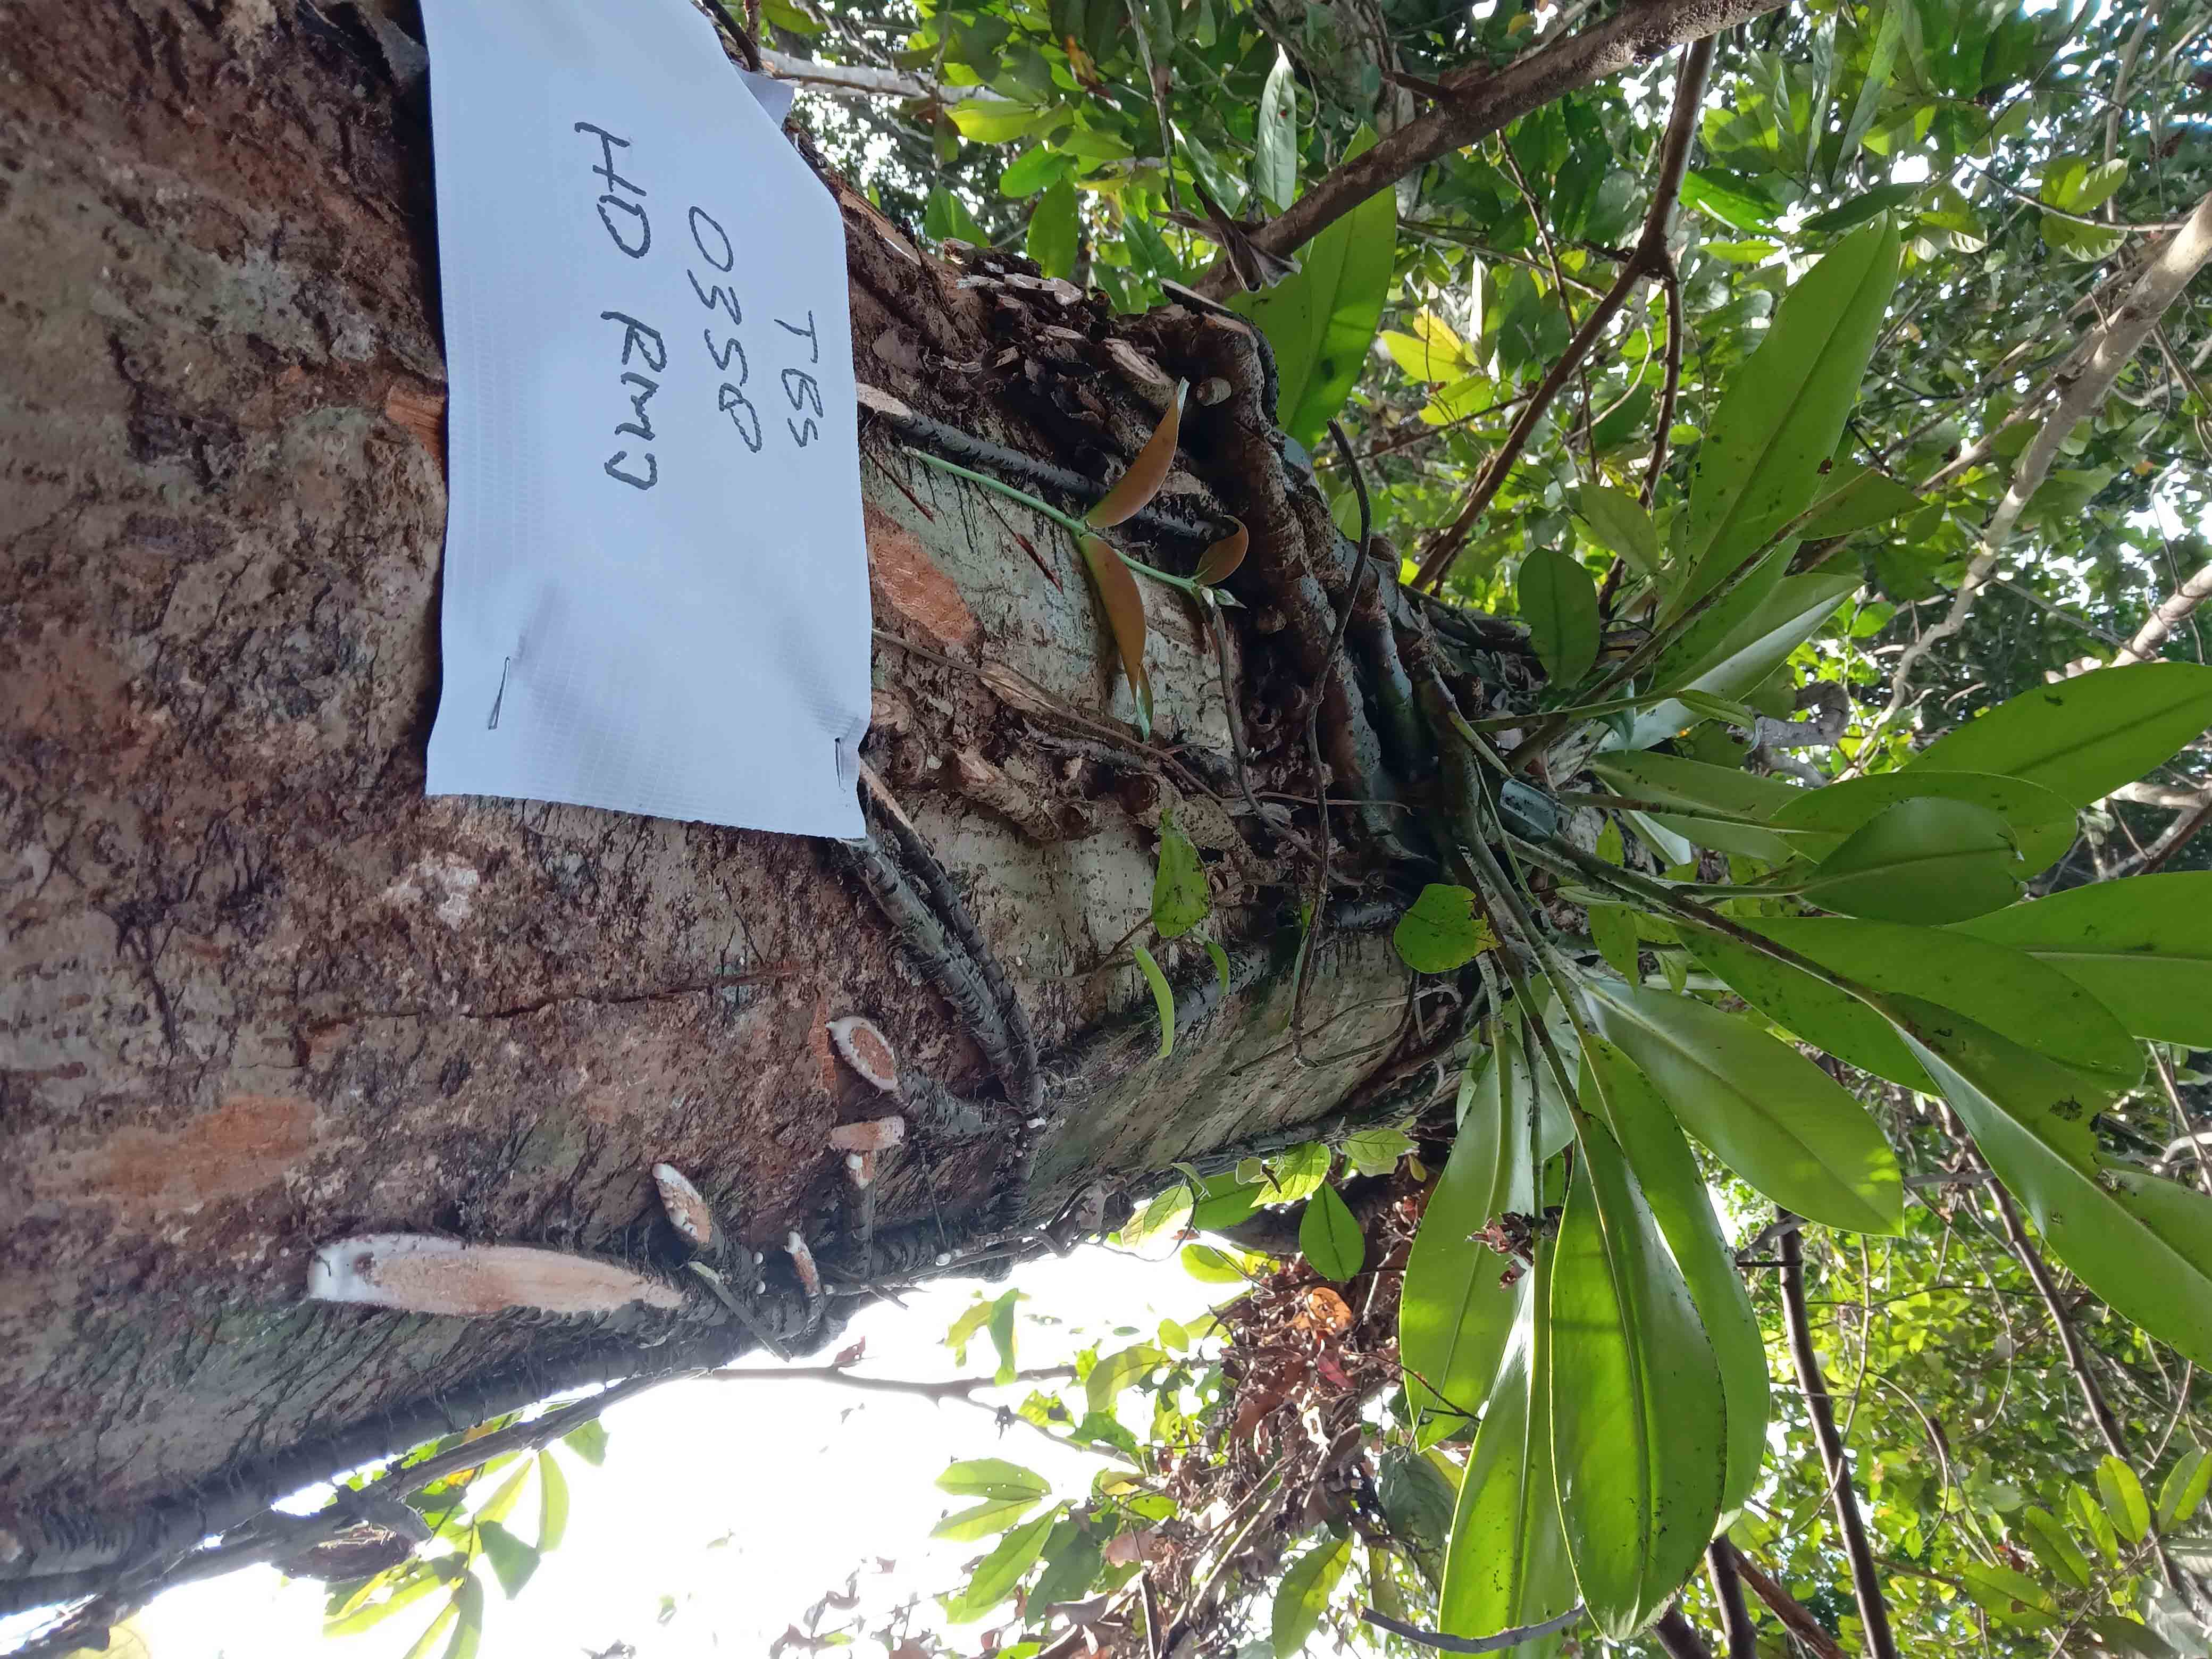 TBS
0358
HD RMJ